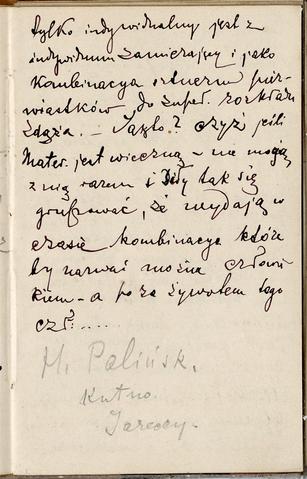 tylko indywidualny jest z
indywiduum zamierający i jako
kombinacya pier-
wiastków do zupeł. rozkładu
zdąża. — Jazło? czyż jeśli
Mater. jest wieczną — nie mogą
z nią razem i Idey tak się
grupować, że wydają w
czasie kombinacye które
by nazwać można człowie
kiem — a poza żywotem tego
czł: ....
M. Palińsk.
Kutno.